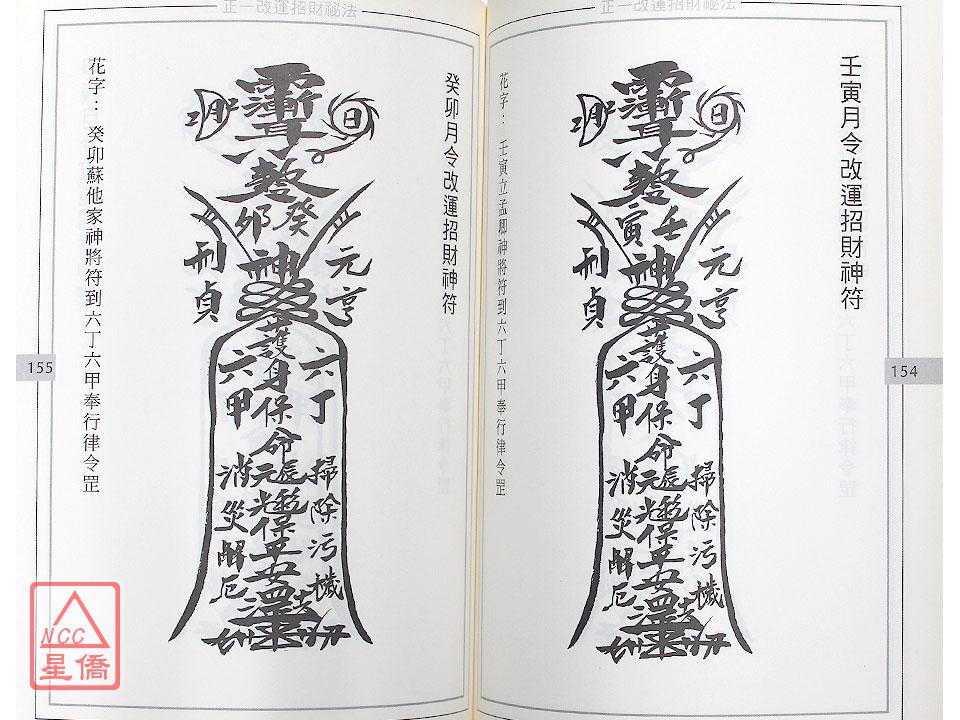 正一改運招財祕法
壬寅月令改運招財神符
日
月
壬
寅
神
元亨
刑貞
護身保命
六丁
六甲
掃除污穢
元辰光彩保平安
消災解厄
花字：壬寅立孟卿神將符到六丁六甲奉行律令罡
154
正一改運招財祕法
癸卯月令改運招財神符
日
月
癸
卯
神
元亨
刑貞
護身保命
六丁
六甲
掃除污穢
元辰光彩保平安
消災解厄
花字：癸卯蘇他家神將符到六丁六甲奉行律令罡
155
NCC
星僑